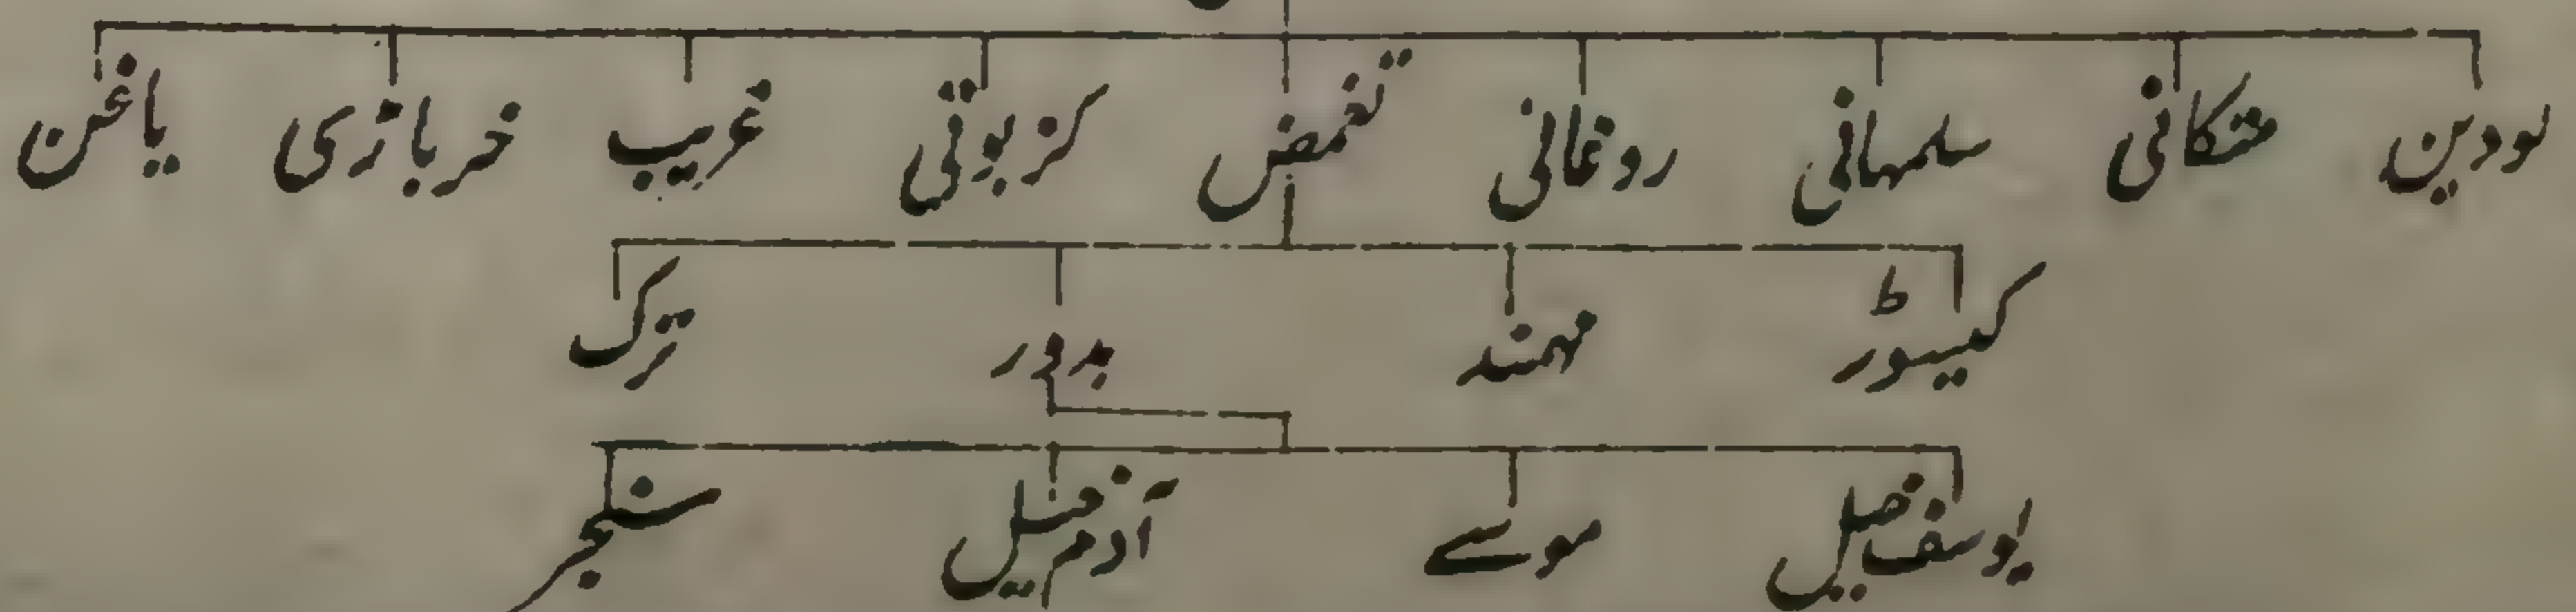 لودین متکانی سلمہانی روغانی تغمض کزبوتی غریب خرباڑی یاغن
کیسوڑ مہمند بدور ترک
یوسف خیل موسے آدم خیل سنجر